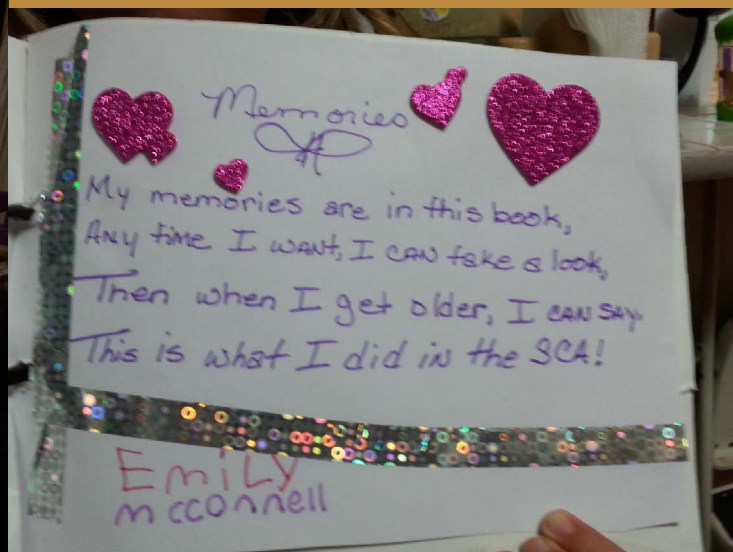 Memories
My memories are in this book,
ANy time I WANT, I CAN take a look,
Then when I get older, I CAN SAY
This is what I did iN the SCA!
EmiLy
mcconnell